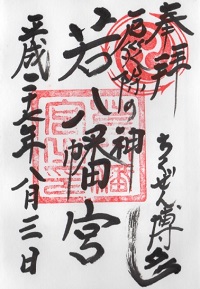 奉拝
ちくぜん博多
厄除の神
若八幡宮
平成二十七年八月二日